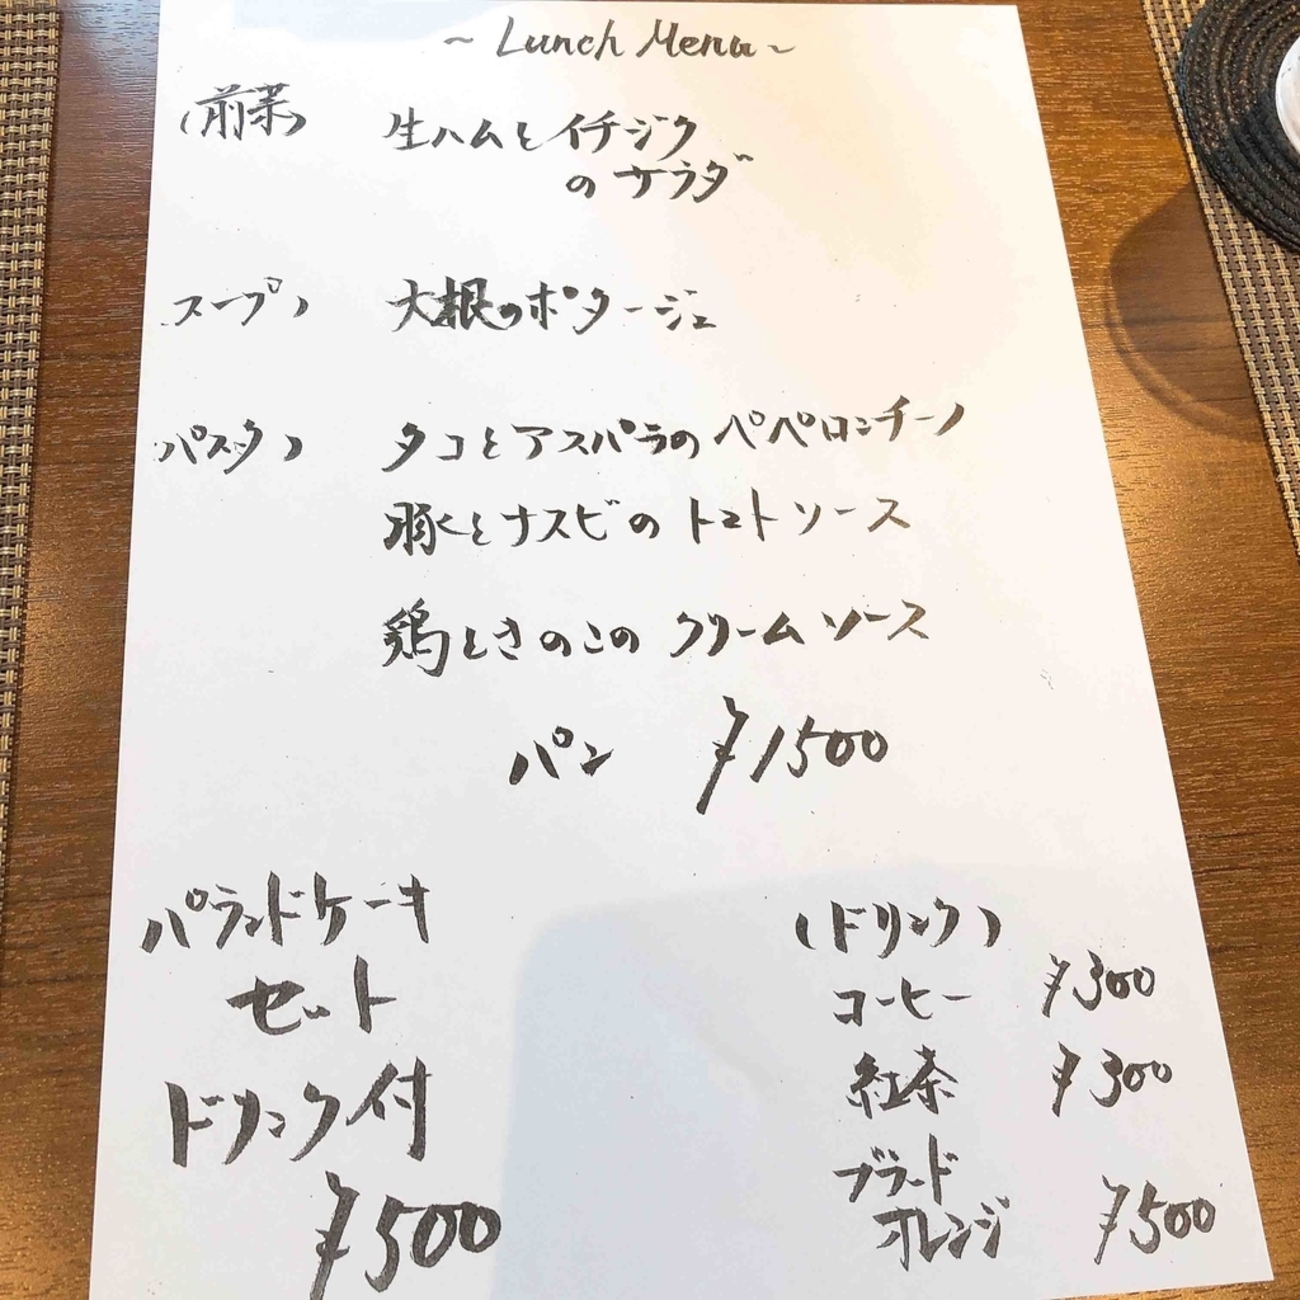 ~ Lunch Menu ~
(前菜) 生ハムとイチジク
のサラダ
スープ) 大根のポタージュ
パスタ) タコとアスパラのペペロンチーノ
豚とナスビのトマトソース
鶏ときのこの クリームソース
パン ¥1500
パウンドケーキ
セット
ドリンク付
¥500
(ドリンク)
コーヒー ¥300
紅茶 ¥300
ブラッド
オレンジ ¥500